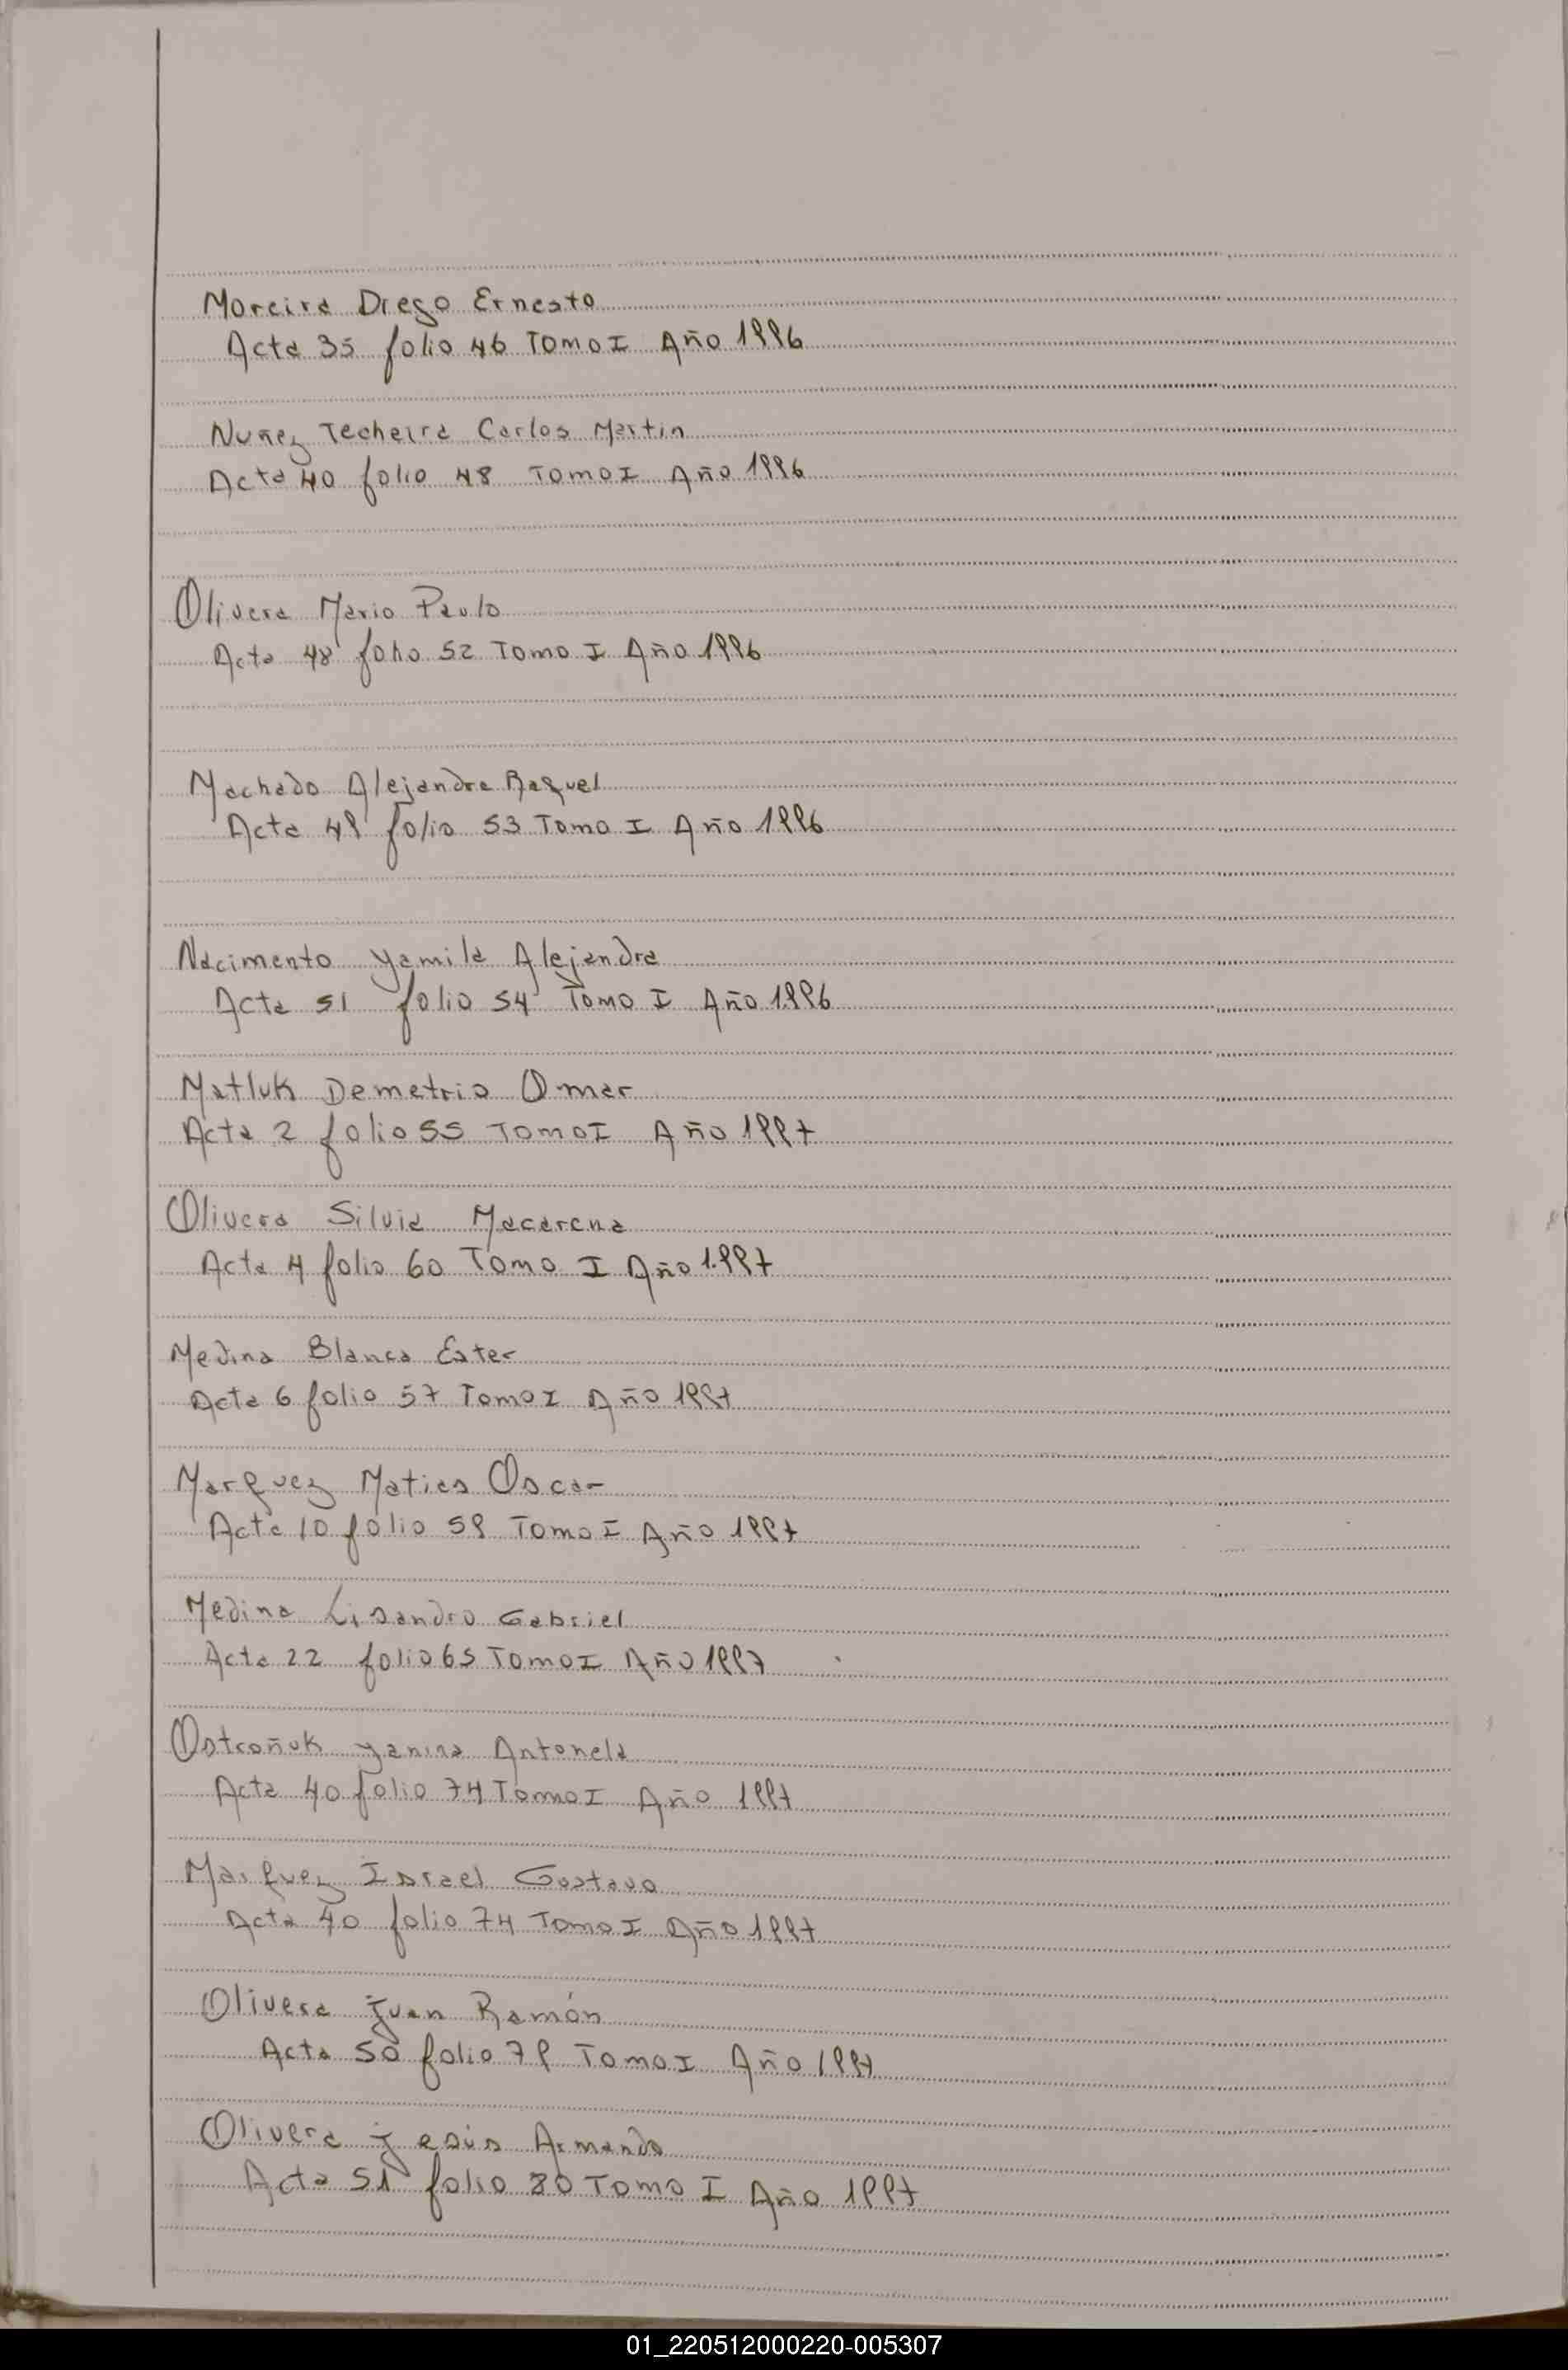 Moreira Diego Ernesto
Acta 35 folio 46 Tomo I Año 1996
Nuñez Techeira Carlos Martin
Acta 40 folio 48 Tomo I Año 1996
Olivera Mario Paulo
Acta 48 folio 52 Tomo I Año 1996
Machado Alejandra Raquel
Acta 49 folio 53 Tomo I Año 1996
Nacimento Yamila Alejandra
Acta 51 folio 54 Tomo I Año 1.996
Matluk Demetrio Omar
Acta 2 folio 55 Tomo I Año 1997
Olivera Silvia Macarena
Acta 4 folio 60 Tomo I Año 1.997
Medina Blanca Ester
Acta 6 folio 57 Tomo I Año 1997
Marquez Matias Oscar
Acta 10 folio 59 Tomo I Año 1997
Medina Lisandro Gabriel
Acta 22 folio 65 Tomo I Año 1997
Ostroñuk Yanina Antonela
Acta 40 folio 74 Tomo I Año 1997
Marquez Israel Gustavo
Acta 40 folio 74 Tomo I Año 1997
Olivera Juan Ramón
Acta 50 folio 79 Tomo I Año 1997
Olivera Jesús Armando
Acta 51 folio 80 Tomo I Año 1997
01_220512000220-005307